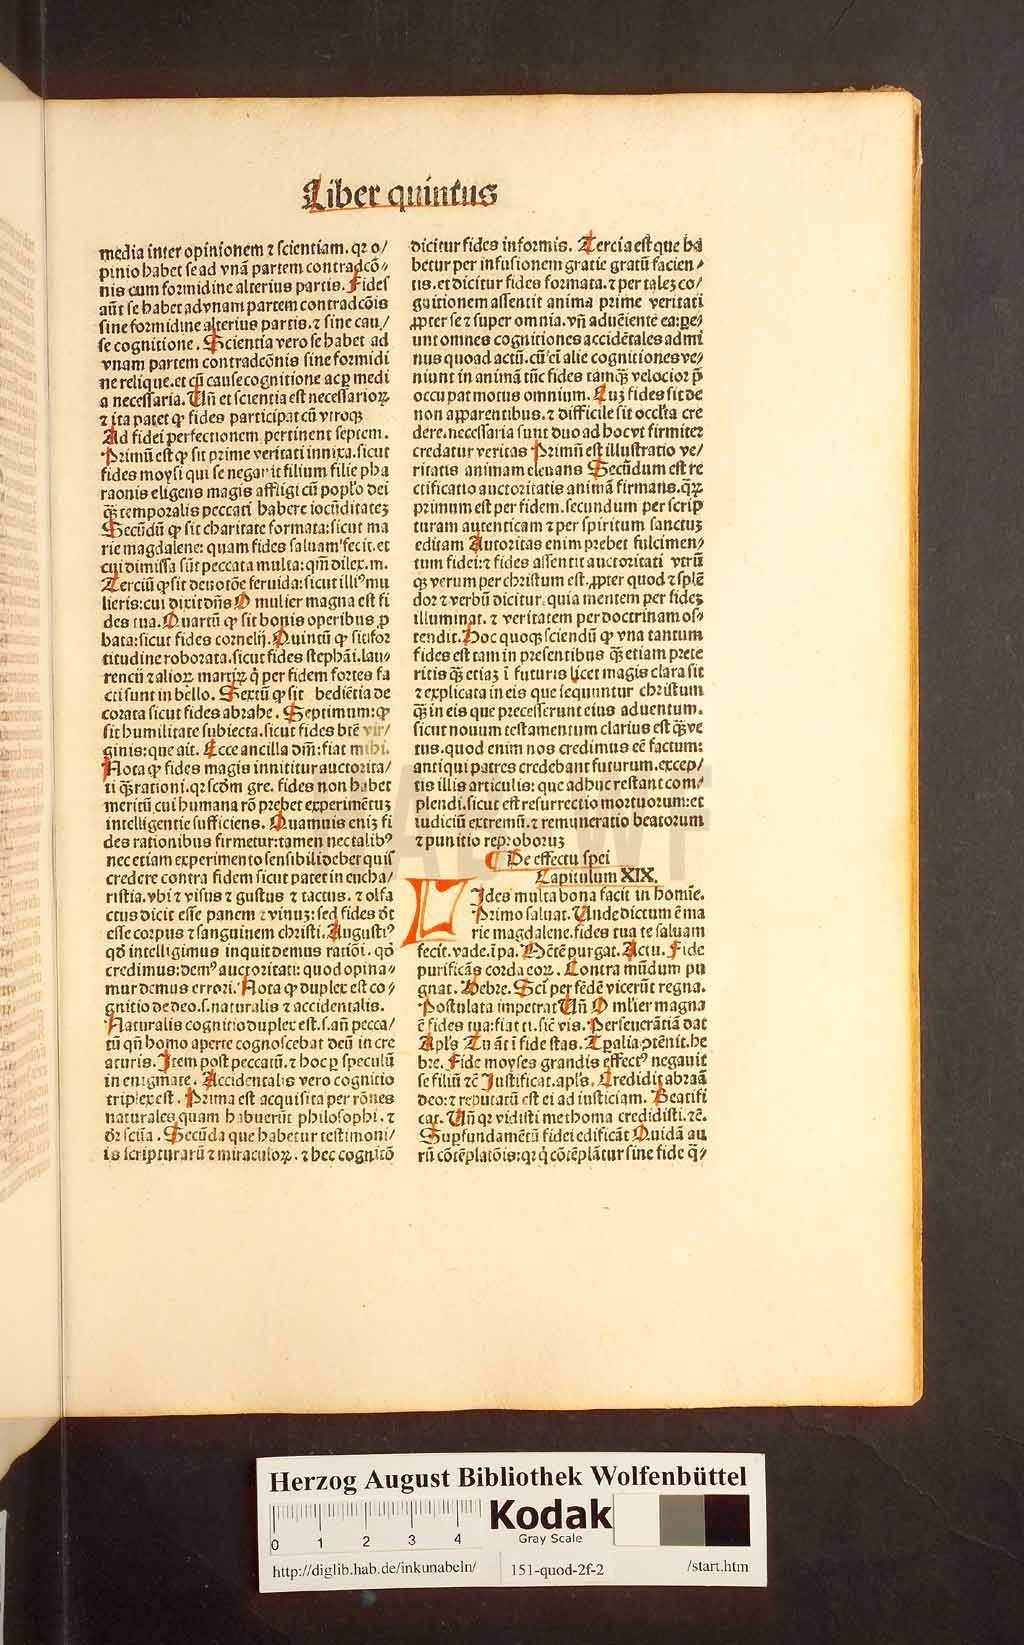 Liber quintus
media inter opinionem ⁊ scientiam. qꝛ o/
pinio habet se ad vnā partem contradcō⸗
nis cum formidine alterius partis. Fides
aūt se habet ad vnam partem contradcōis
sine formidine alterius partis. ⁊ sine cau/
se cognitione. Scientia vero se habet ad
vnam partem contradcōnis sine formidi
ne relique. et cū cause cognitione ac ꝑ medi
a necessaria. Uñ et scientia est necessarioꝝ
⁊ ita patet ꝙ fides participat cū vtroqꝫ
Ad fidei perfectionem pertinent septem.
Primū est ꝙ sit prime veritati innixa. sicut
fides moysi qui se negauit filium filie pha
raonis eligens magis affligi cū poplo dei
q̄ꝫ temporalis peccati habere iocūditateꝫ
Secūdū ꝙ sit charitate formata: sicut ma
rie magdalene: quam fides saluam fecit. et
cui dimissa sūt peccata multa: qm̄ dilex. m.
Terciū ꝙ sit deuotōe feruida: sicut illiꝰ mu
lieris: cui dixit dn̄s O mulier magna est fi
des tua. Quartū ꝙ sit bonis operibus ꝓ
bata: sicut fides cornelij. Quintū ꝙ sit for
titudine roborata. sicut fides stephāi. lau⸗
rencii ⁊ alioꝝ martiꝝ q̇ per fidem fortes fa
cti sunt in bello. Sextū ꝙ sit bediētia de
corata sicut fides abrahe. Septimum: ꝙ
sit humilitate subiecta. sicut fides btē vir/
ginis: que ait. Ecce ancilla dn̄i: fiat mihi.
Nota ꝙ fides magis innititur auctorita/
ti q̄ꝫ rationi. qꝛ scd̄m gre. fides non habet
meritū cui humana rō prebet experimētuꝫ
intelligentie sufficiens. Quamuis eniꝫ fi
des rationibus firmetur: tamen nec talibꝰ
nec etiam experimento sensibili debet quis
credere contra fidem sicut patet in eucha/
ristia. vbi ⁊ visus ⁊ gustus ⁊ tactus. ⁊ olfa
ctus dicit esse panem ⁊ vinuꝫ: sed fides dt̄
esse corpus ⁊ sanguinem christi. Augustiꝰ
qd̄ intelligimus inquit demus ratiōi. qd̄
credimus: demꝰ auctoritati: quod opina⸗
mur demus errori. Nota ꝙ duplex est co⸗
gnitio de deo. s. naturalis ⁊ accidentalis.
Naturalis cognitio duplex est. s. an̄ pecca/
tū qn̄ homo aperte cognoscebat deū in cre
aturis. Item post peccatū. ⁊ hoc ꝑ speculū
in enigmate. Accidentalis vero cognitio
triplex est. Prima est acquisita per rōnes
naturales quam habuerūt philosophi. ⁊
dr̄ scīa. Secūda que habetur testimoni/
is scripturarū ⁊ miraculoꝝ. ⁊ hec cognitō
dicitur fides informis. Tercia est que ha
betur per infusionem gratie gratū facien⸗
tis. et dicitur fides formata. ⁊ per taleꝫ co/
gnitionem assentit anima prime veritati
ꝓpter se ⁊ super omnia. vñ aduēiente ea: ꝑe/
unt omnes cognitiones accidētales admi
nus quoad actū. cū eī alie cognitiones ve/
niunt in animā tūc fides tamq̄ꝫ velocior p̄
occupat motus omnium. Cuꝫ fides sit de
non apparentibus. ⁊ difficile sit occlta cre
dere. necessaria sunt duo ad hoc vt firmiteꝛ
credatur veritas Primū est illustratio ve/
ritatis animam eleuans Secūdum est re
ctificatio auctoritatis animā firmans. q̄ꝝ
primum est per fidem. secundum per scrip
turam autenticam ⁊ per spiritum sanctuꝫ
editam Autoritas enim prebet fulcimen/
tum fidei: ⁊ fides assentit auctoritati vtrū
qꝫ verum per christum est. ꝓpter quod ⁊ splē
dor ⁊ verbū dicitur. quia mentem per fideꝫ
illuminat. ⁊ veritatem per doctrinam os⸗
tendit. Hoc quoqꝫ sciendū ꝙ vna tantum
fides est tam in presentibus q̄ꝫ etiam prete
ritis q̄ꝫ etiaꝫ ī futuris licet magis clara sit
⁊ explicata in eis que sequuntur christum
q̄ꝫ in eis que precesserunt eius aduentum.
sicut nouum testamentum clarius est q̄ꝫ ve
tus. quod enim nos credimus eē factum:
antiqui patres credebant futurum. excep/
tis illis articulis: que adhuc restant com/
plendi. sicut est resurrectio mortuorum: et
iudiciū extremū. ⁊ remuneratio beatorum
⁊ punitio reproboruꝫ
De effectu spei
Capitulum XIX.
Ides multa bona facit in homīe.
Primo saluat. Unde dictum ē ma
rie magdalene. fides tua te saluam
fecit. vade. ī pa. Mētē purgat. Actu. Fide
purificās corda eoꝝ. Contra mūdum pu
gnat. Hebre. Sci per fēdē vicerūt regna.
Postulata impetrat Uñ O mlier magna
ē fides tua: fiat ti. sic̄ vis. Perseuerātiā dat
Apls̄ Tu āt ī fide stas. Tpalia ꝯtēnit. he
bre. Fide moyses grandis effectꝰ negauit
se filiū ⁊c̄ Justificat. apls̄. Credidit abraā
deo: ⁊ reputatū est ei ad iusticiam. Beatifi
cat. Uñ qꝛ vidisti me thoma credidisti. ⁊c̄.
Sup fundamētū fidei edificāt Quidā au
rū cōtēplatōis: qꝛ q̇ cōtēplātur sine fide q̄⸗
Herzog August Bibliothek Wolfenbüttel
0 1 2 3 4
Kodak
Gray Scale
http://diglib.hab.de/inkunabeln/
151-quod-2f-2
/start.htm